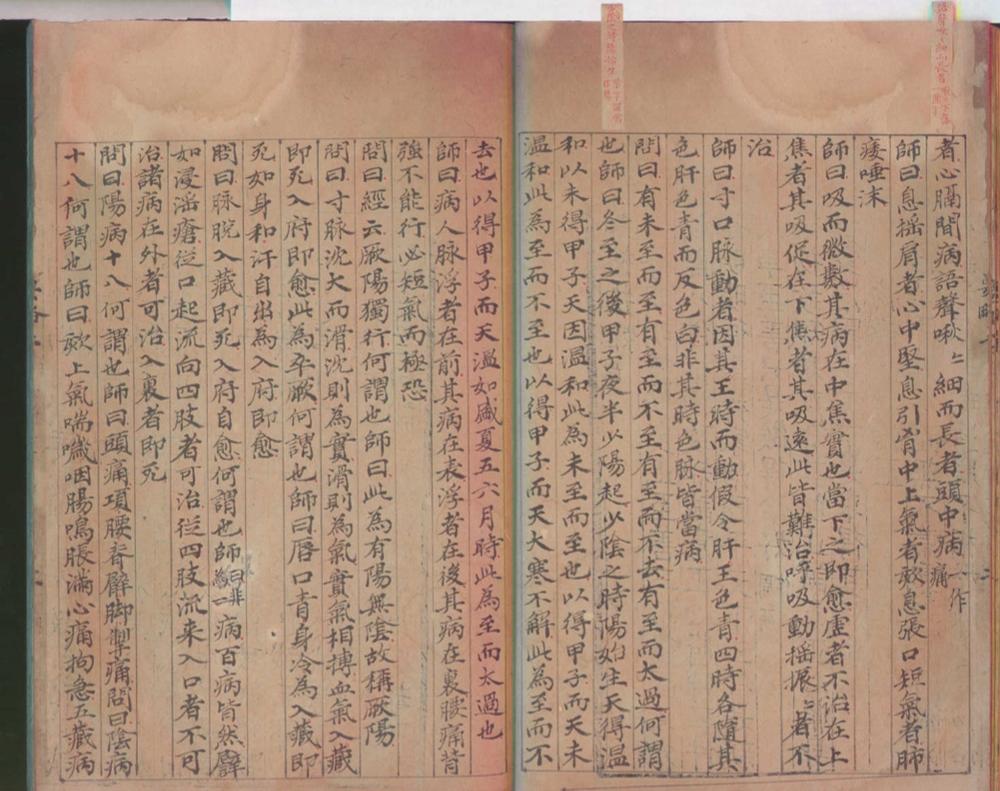 者心膈間病語聲啾〻細而長者頭中病一作痛
師曰息搖肩者心中堅息引胷中上氣者欬息張口短氣者肺
痿唾沫
師曰吸而微數其病在中焦實也當下之即愈虛者不治在上
焦者其吸促在下焦者其吸遠此皆難治呼吸動搖振〻者不
治
師曰寸口脉動者因其王時而動假令肝王色青四時各隨其
色肝色青而反色白非其時色脉皆當病
問曰有未至而至有至而不至有至而不去有至而太過何謂
也師曰冬至之後甲子夜半少陽起少陰之時陽始生天得溫
和以未得甲子天因溫和此為未至而至也以得甲子而天未
溫和此為至而不至也以得甲子而天大寒不解此為至而不
去也以得甲子而天溫如盛夏五六月時此為至而太過也
師曰病人脉浮者在前其病在表浮者在後其病在裏腰痛背
強不能行必短氣而極恐
問曰經云厥陽獨行何謂也師曰此為有陽無陰故稱厥陽
問曰寸脉沈大而滑沈則為實滑則為氣實氣相搏血氣入藏
即死入府即愈此為卒厥何謂也師曰唇口青身冷為入藏即
死如身和汗自出為入府即愈
問曰脉脫入藏即死入府自愈何謂也師曰非為一病百病皆然譬
如浸淫瘡從口起流向四肢者可治從四肢流来入口者不可
治諸病在外者可治入裏者即死
問曰陽病十八何謂也師曰頭痛項腰脊臂脚掣痛問曰陰病
十八何謂也師曰欬上氣喘噦咽腸鳴脹滿心痛拘急五藏病